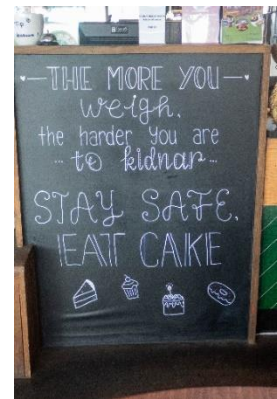 THE MORE YOU
weigh,
the harder you are
to kidnap
STAY SAFE.
EAT CAKE